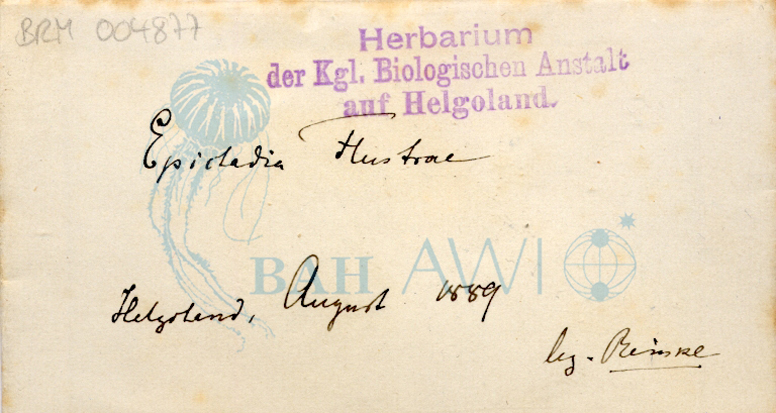 BRM 004877
Herbarium
der Kgl. Biologischen Anstalt
auf Helgoland.
Epicladia Flustrae
BAH AWI
Helgoland, August 1889
leg. Reinke